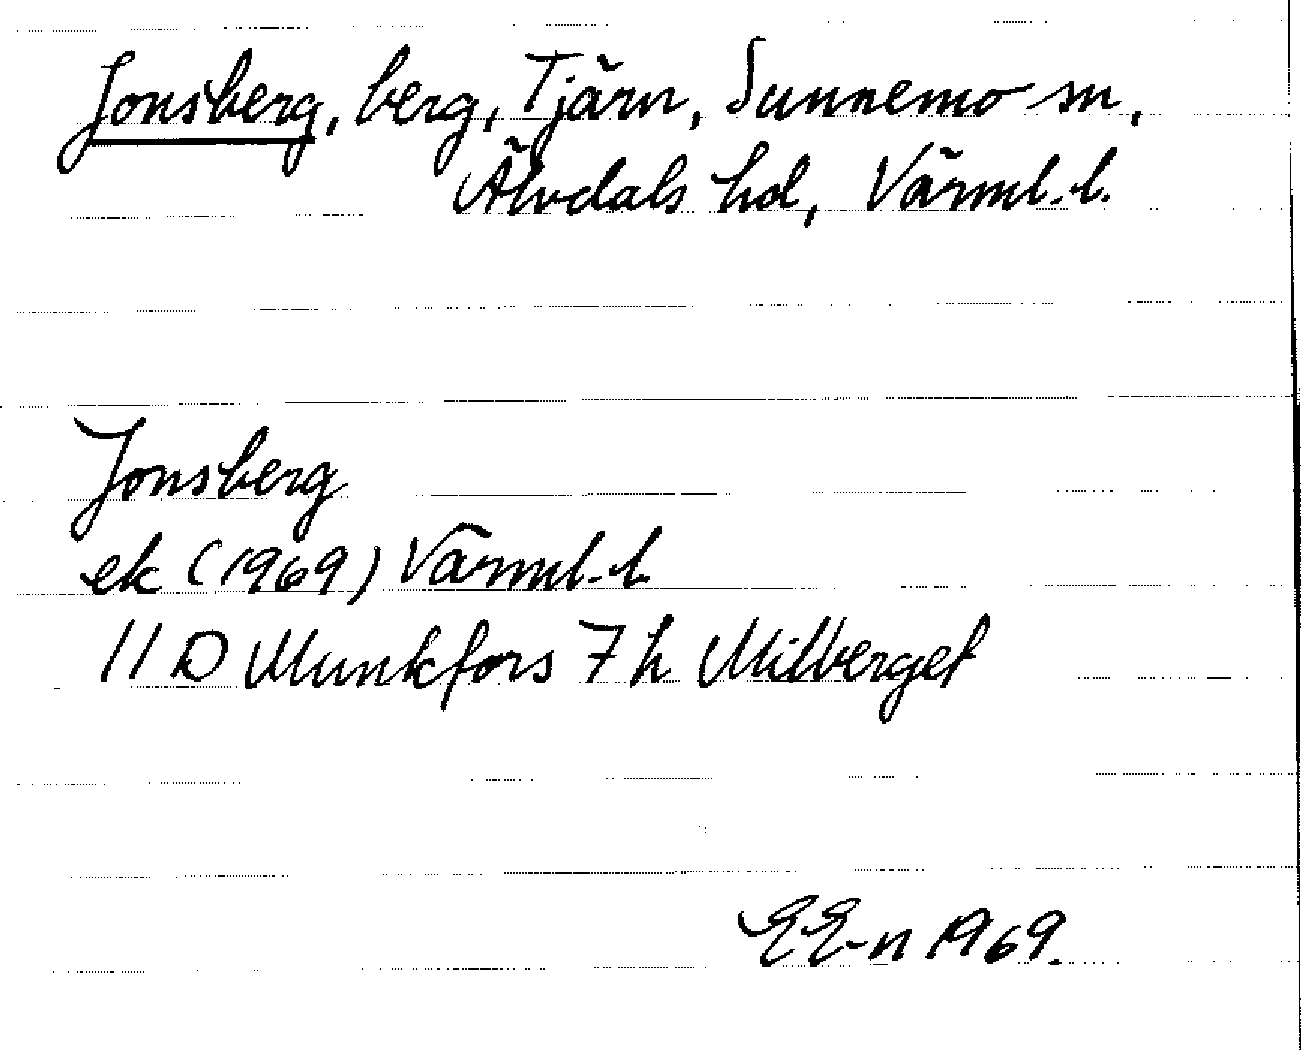 Jonsberg, berg, Tjärn, Sunnemo sn,
Älvdals hd, Värml. l.
Jonsberg
ek (1969) Värml. l.
11 D Munkfors 7 h Milberget
EE-n 1969.